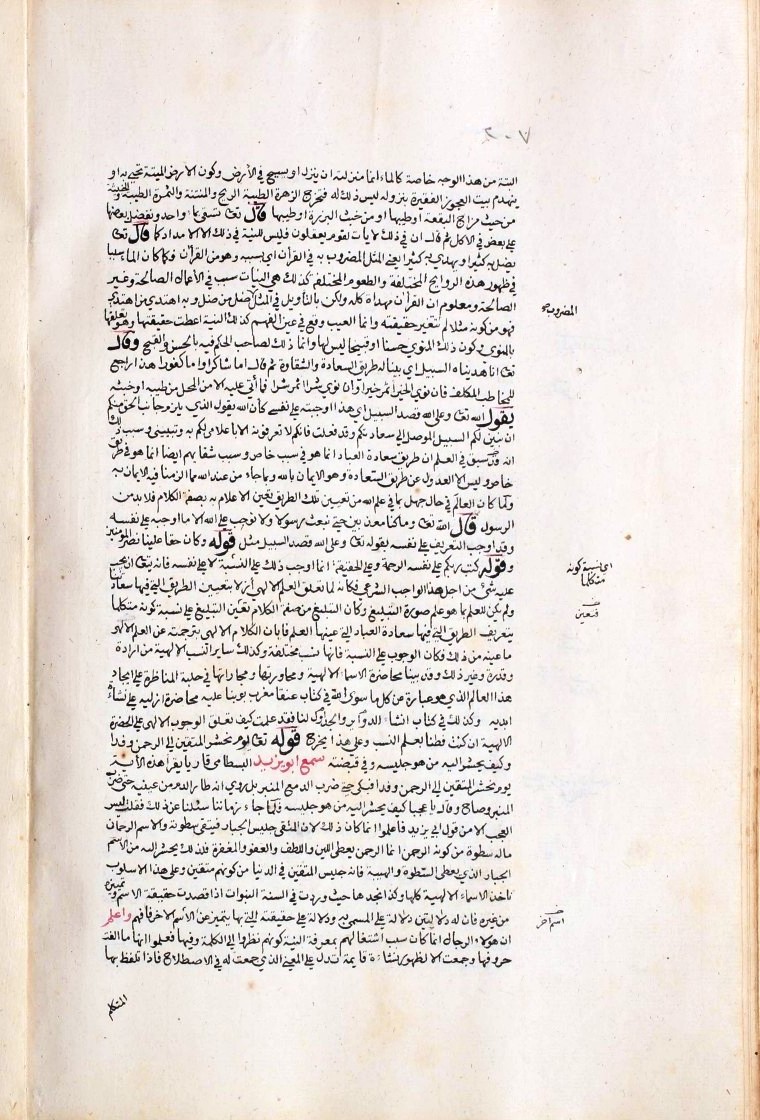 ٢٠٧
البتة من هذا الوجه خاصة كالماء انما منزلته ان ينزل او يسيح في الأرض وكون الارض الميتة تحيى به او
ينهدم بيت العجوز الفقيرة بنزوله ليس ذلك له فتخرج الزهرة الطيبة الريح والمنتنة والثمرة الطيبة والخبيثة
من خبث مزاج البقعة او طيبها او من خبث البزرة او طيبها قال تعالى تسقى بماء واحد ونفضل بعضها
على بعض في الاكل ثم قال ان في ذلك لآيات لقوم يعقلون فليس للنية في ذلك الا الامداد كما قال تعالى
يضل به كثيرا ويهدي به كثيرا يعني المثل المضروب به في القرآن اي بسببه وهو من القرآن فكما كان الماء سببا
في ظهور هذه الروايح المختلفة والطعوم المختلفة كذلك هي النيات سبب في الأعمال الصالحة وغير
الصالحة ومعلوم ان القرآن مهداة كله ولكن بالتأويل في المثل ضل من ضل وبه اهتدى من اهتدى
المضروب
فهو من كونه مثلا لم تتغير حقيقته وانما العيب وقع في عين الفهم كذلك النية اعطت حقيقتها وهو تعلقها
بالمنوي وكون ذلك المنوي حسنا او قبيحا ليس لها وانما ذلك لصاحب الحكم فيه بالحسن والقبح وقال
تعالى انا هديناه السبيل اي بينا له طريق السعادة والشقاوة ثم قال اما شاكرا واما كفورا هذا راجع
للمخاطب المكلف فان نوى الخير اثمر خيرا وان نوى شرا اثمر شرا فما أتى عليه الا من المحل من طيبه او خبثه
يقول الله تعالى وعلى الله قصد السبيل اي هذا اوجبته على نفسي كأن الله يقول الذي يلزم جانب الحق منكم
ان نبين لكم السبيل الموصل الى سعادتكم وقد فعلت فانكم لا تعرفونه الا باعلامي لكم به وتبييني وسبب ذلك
انه قد سبق في العلم ان طريق سعادة العباد انما هو في سبب خاص وسبب شقائهم ايضا انما هو في طريق
خاص وليس الا العدول عن طريق السعادة وهو الايمان بالله وبما جاء من عند الله مما الزمنا فيه الايمان به
ولما كان العالم في حال جهل بما في علم الله من تعيين تلك الطريق تعين الاعلام به بصفة الكلام فلا بد من
الرسول قال الله تعالى وما كنا معذبين حتى نبعث رسولا ولا نوجب على الله الا ما اوجبه على نفسه
وقد اوجب التعريف على نفسه بقوله تعالى وعلى الله قصد السبيل مثل قوله وكان حقا علينا نصر المؤمنين
وقوله كتب ربكم على نفسه الرحمة وعلى الحقيقة انما اوجب ذلك على النسبة لا على نفسه فانه يتعالى ان يجب
اي نسبة كونه متكلما
عليه شيء من اجل هذا الواجب الشرعي فكانه لما تعلق العلم الالهي أزلا بتعيين الطريق التي فيها سعادتنا
ولم يكن للعلم بما هو علم صورة التبليغ وكان التبليغ من صفة الكلام تعين التبليغ على نسبة كونه متكلما
فتعين
بتعريف الطريق التي فيها سعادة العباد التي عينها العلم فابان الكلام الالهي بترجمته عن العلم الالهي
ما عينه من ذلك فكان الوجوب على النسبة فانها نسب مختلفة وكذلك سائر النسب الالهية من ارادة
وقدرة وغير ذلك وقد بينا محاضرة الاسماء الالهية ومحاورتها ومجاراتها في حلبة المناظرة على ايجاد
هذا العالم الذي هو عبارة عن كل ما سوى الله في كتاب عنقا مغرب بوبنا عليه محاضرة ازلية على نشأة
ابدية وكذلك في كتاب انشاء الدوائر والجداول لنا فقد علمت كيف تعلق الوجوب الالهي على الحضرة
الالهية ان كنت فطنا بعلم النسب وعلى هذا يخرج قوله تعالى يوم نحشر المتقين الى الرحمن وفدا
وكيف يحشر اليه من هو جليسه وفي قبضته سمع ابو يزيد البسطامي قاريا يقرأ هذه الآية
يوم نحشر المتقين الى الرحمن وفدا فبكى حتى ضرب الدمع المنبر بل روي انه طار الدم من عينيه حتى ضرب
المنبر وصاح وقال يا عجبا كيف يحشر اليه من هو جليسه فلما جاء زماننا سئلنا عن ذلك فقلت ليس
العجب الا من قول ابي يزيد فاعلموا انما كان ذلك لان المتقي جليس الجبار فيتقي سطوته والاسم الرحمان
ماله سطوة من كونه الرحمن انما الرحمن يعطي اللين واللطف والعفو والمغفرة فلذلك يحشر اليه من الاسم
الجبار الذي يعطي السطوة والهيبة فانه جليس المتقين في الدنيا من كونهم متقين وعلى هذا الاسلوب
تاخذ الاسماء الالهية كلها وكذا تجدها حيث وردت في السنة النبوات اذا قصدت حقيقة الاسم وتميزه
من غيره فان له دلالتين دلالة على المسمى به ودلالة على حقيقته التي بها يتميز عن الأسم الاخر فافهم واعلم
اسم اخر
ان هؤلاء الرجال انما كان سبب اشتغالهم بمعرفة النية كونهم نظروا الى الكلمة وفيها فعلموا انها ما الفت
حروفها وجمعت الا لظهور نشاءة قايمة تدل على المعنى الذي جمعت له في الاصطلاح فاذا تلفظ بها
المتكلم